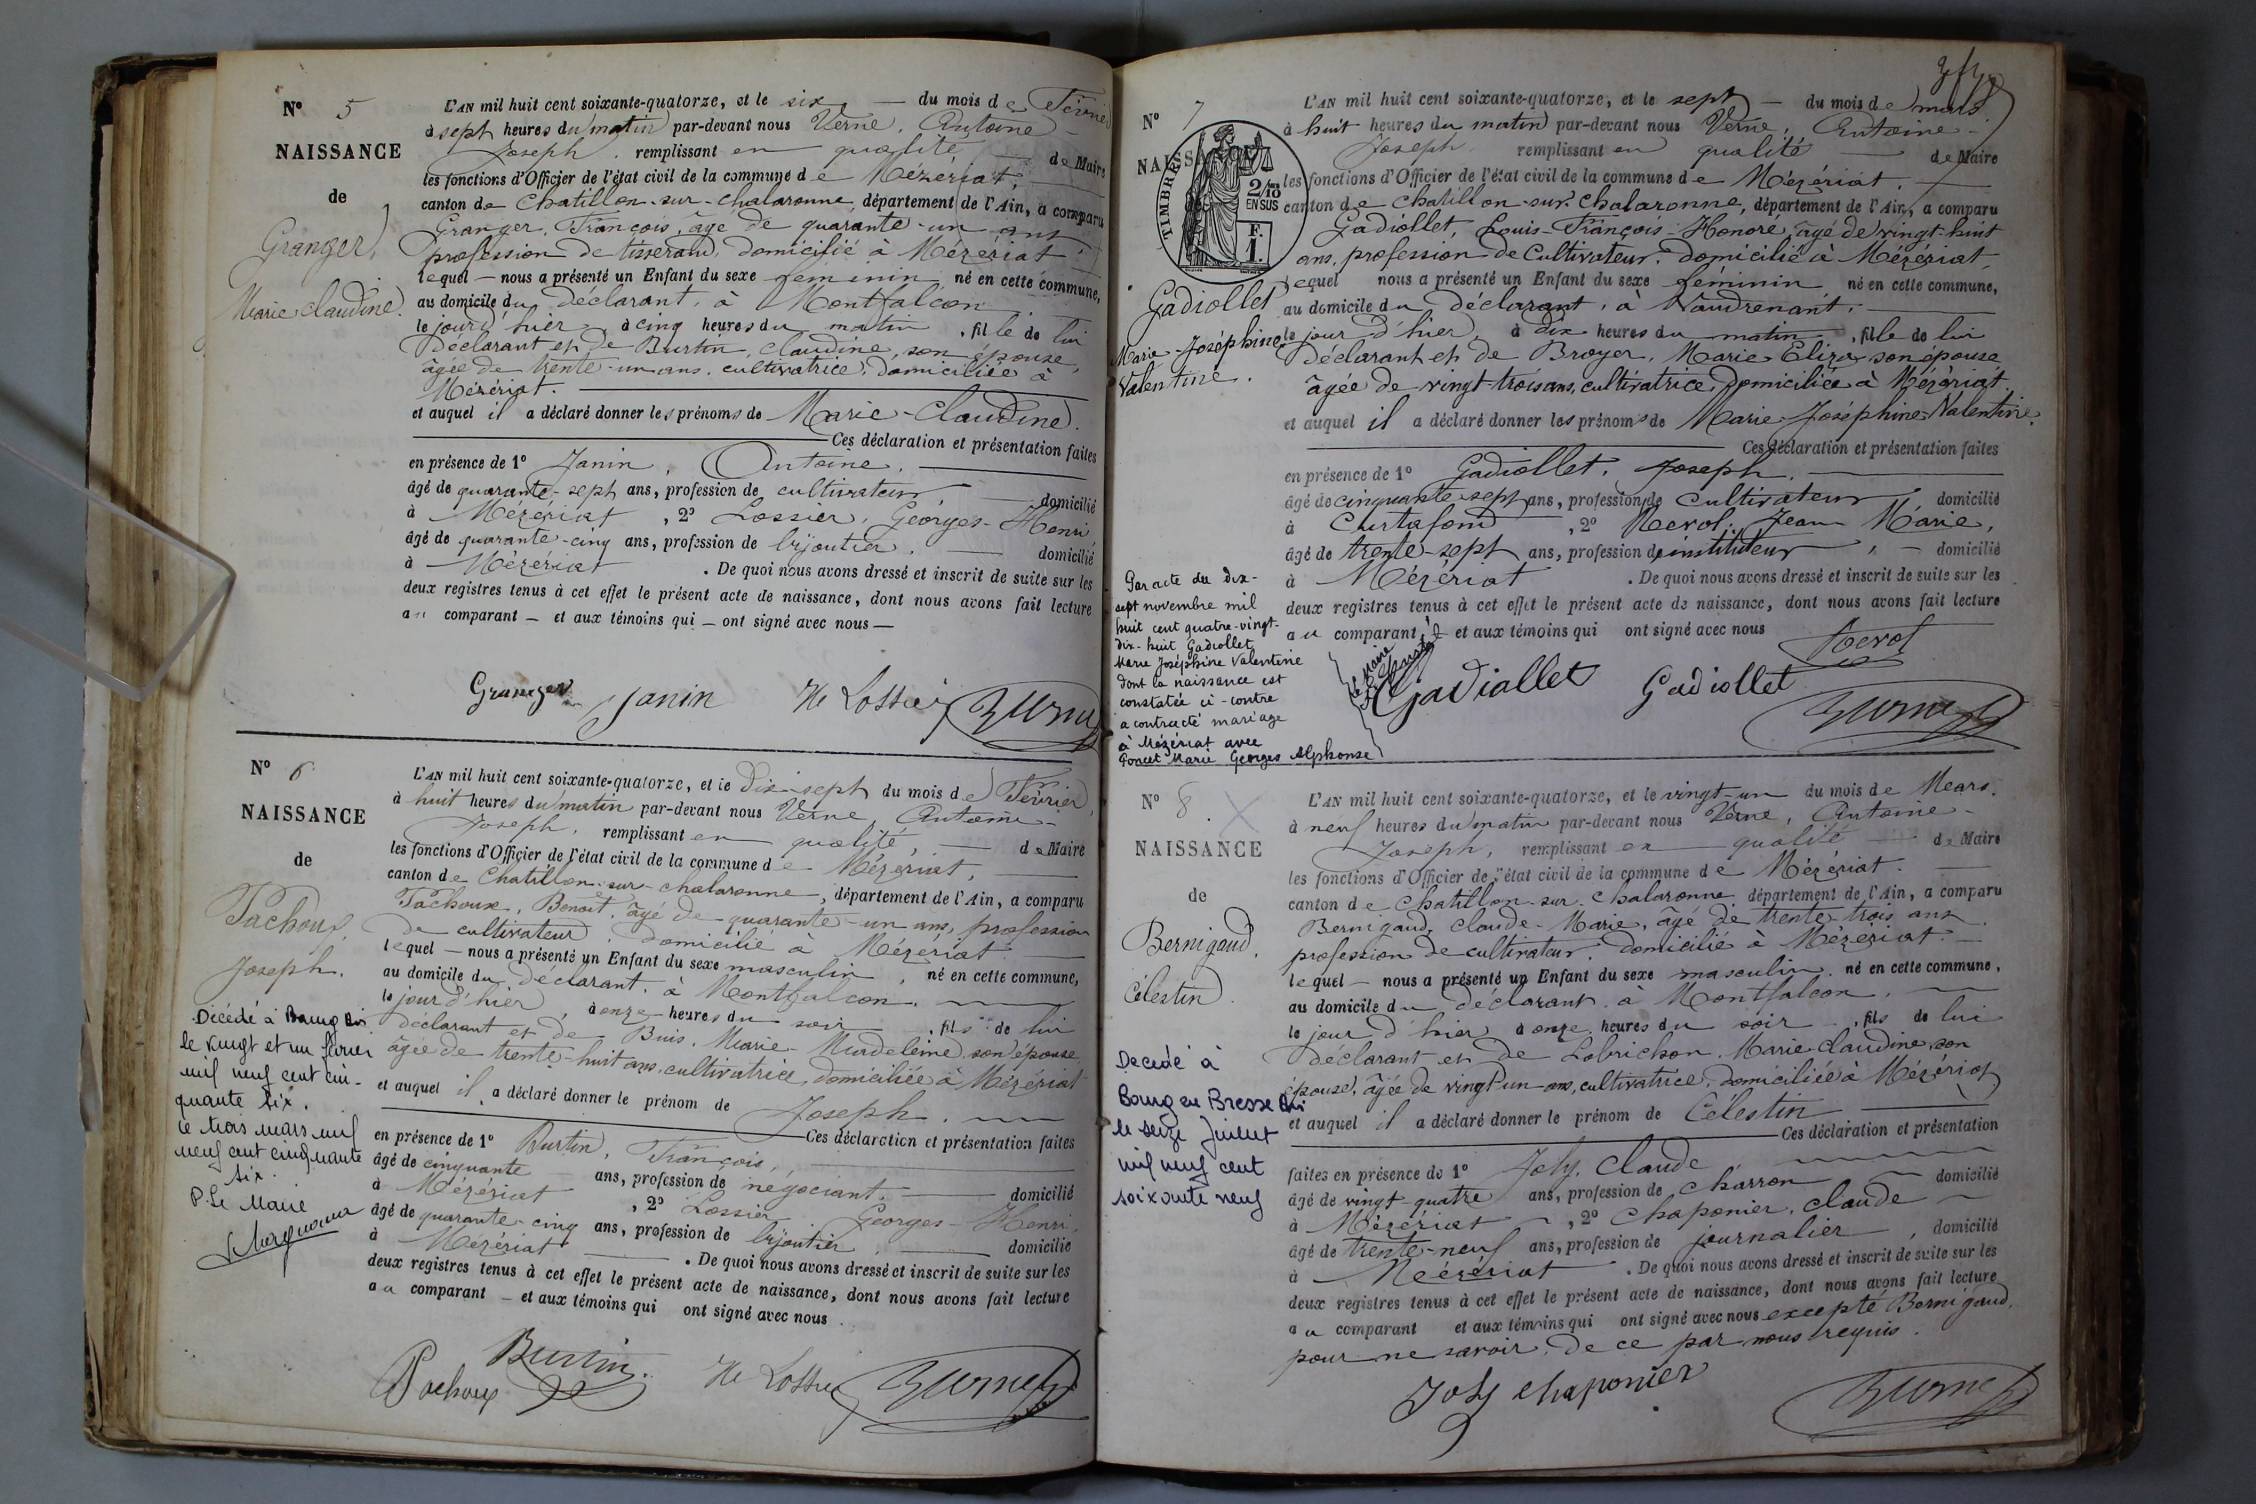 N° 5
NAISSANCE
de
Granger,
Marie Claudine.
L'AN mil huit cent soixante-quatorze, et le six, — du mois de Février
à sept heures du matin par-devant nous Verne, Antoine
Joseph, remplissant en qualité — de Maire
les fonctions d'Officier de l'état civil de la commune de Mézériat,
canton de Chatillon-sur-chalaronne, département de l'Ain, a comparu
Granger, François, âgé de quarante-un ans
profession de tisserand, domicilié à Mézériat
lequel — nous a présenté un Enfant du sexe féminin né en cette commune,
au domicile du déclarant, à Montfalcon
le jour d'hier, à cinq heures du matin, fille de lui
déclarant et de Burtin, Claudine, son épouse,
âgée de trente-un ans, cultivatrice, domiciliée à
Mézériat.
et auquel il a déclaré donner les prénoms de Marie-Claudine.
Ces déclaration et présentation faites
en présence de 1° Janin, Antoine,
âgé de quarante-sept ans, profession de cultivateur, domicilié
à Mézériat, 2° Lossier, Georges-Henri,
âgé de quarante-cinq ans, profession de bijoutier, domicilié
à Mézériat. De quoi nous avons dressé et inscrit de suite sur les
deux registres tenus à cet effet le présent acte de naissance, dont nous avons fait lecture
au comparant — et aux témoins qui — ont signé avec nous —
Granger Janin H Lossier Verne
N° 6
NAISSANCE
de
Pachoux,
Joseph.
Décédé à Bourg Ain
le vingt et un février
mil neuf cent cin-
quante six.
Le trois mars mil
neuf cent cinquante
six.
P. Le Maire
L'AN mil huit cent soixante-quatorze, et le dix-sept du mois de Février,
à huit heures du matin par-devant nous Verne, Antoine-
Joseph, remplissant en qualité, — de Maire
les fonctions d'Officier de l'état civil de la commune de Mézériat,
canton de Chatillon-sur-chalaronne, département de l'Ain, a comparu
Pachoux, Benoit, âgé de quarante-un ans, profession
de cultivateur, domicilié à Mézériat
lequel — nous a présenté un Enfant du sexe masculin, né en cette commune,
au domicile du déclarant, à Montfalcon,
le jour d'hier, à onze heures du soir, fils de lui
déclarant et de Buis, Marie-Madeleine, son épouse,
âgée de trente-huit ans, cultivatrice, domiciliée à Mézériat
et auquel il a déclaré donner le prénom de Joseph.
Ces déclaration et présentation faites
en présence de 1° Burtin, François,
âgé de cinquante ans, profession de négociant, domicilié
à Mézériat, 2° Lossier Georges-Henri,
âgé de quarante-cinq ans, profession de bijoutier, domicilié
à Mézériat. De quoi nous avons dressé et inscrit de suite sur les
deux registres tenus à cet effet le présent acte de naissance, dont nous avons fait lecture
au comparant — et aux témoins qui ont signé avec nous.
Pachoux Burtin. H Lossier Verne
N° 7
NAISSANCE
TIMBRES
2/10 EN SUS
F. 1.
Gadiollet
Marie-Joséphine
Valentine.
Par acte du dix-
sept novembre mil
huit cent quatre-vingt-
dix-huit Gadiollet
Marie Joséphine Valentine
dont la naissance est
constatée ci-contre
a contracté mariage
à Mézériat avec
Poncet Marie Georges Alphonse
L'AN mil huit cent soixante-quatorze, et le sept — du mois de mars
à huit heures du matin par-devant nous Verne, Antoine-
Joseph, remplissant en qualité — de Maire
les fonctions d'Officier de l'état civil de la commune de Mézériat,
canton de Chatillon-sur-Chalaronne, département de l'Ain, a comparu
Gadiollet, Louis-François-Honoré, âgé de vingt-huit
ans, profession de Cultivateur, domicilié à Mézériat,
lequel nous a présenté un Enfant du sexe féminin, né en cette commune,
au domicile du déclarant, à Vaudrenant,
le jour d'hier à dix heures du matin, fille de lui
déclarant et de Broyer, Marie-Eliza, son épouse
âgée de vingt-trois ans, cultivatrice, domiciliée à Mézériat.
et auquel il a déclaré donner les prénoms de Marie-Joséphine-Valentine.
Ces déclaration et présentation faites
en présence de 1° Gadiollet, Joseph,
âgé de cinquante-sept ans, profession de Cultivateur, domicilié
à Curtafond, 2° Nevol, Jean Marie,
âgé de trente-sept ans, profession de instituteur, domicilié
à Mézériat. De quoi nous avons dressé et inscrit de suite sur les
deux registres tenus à cet effet le présent acte de naissance, dont nous avons fait lecture
au comparant et aux témoins qui ont signé avec nous
Nevol
Gadiollet Gadiollet
Verne
N° 8.
NAISSANCE
de
Bernigaud,
Célestin.
Décédé à
Bourg en Bresse Ain
le seize Juillet
mil neuf cent
soixante neuf
L'AN mil huit cent soixante-quatorze, et le vingt-un du mois de Mars,
à neuf heures du matin par-devant nous Verne, Antoine-
Joseph, remplissant en qualité de Maire
les fonctions d'Officier de l'état civil de la commune de Mézériat.
canton de Chatillon-sur-Chalaronne, département de l'Ain, a comparu
Bernigaud, Claude-Marie, âgé de trente-trois ans
profession de cultivateur, domicilié à Mézériat. —
lequel — nous a présenté un Enfant du sexe masculin, né en cette commune,
au domicile du déclarant, à Montfalcon,
le jour d'hier à onze heures du soir, fils de lui
déclarant et de Labrichon, Marie Claudine, son
épouse, âgée de vingt-un ans, cultivatrice, domiciliée à Mézériat
et auquel il a déclaré donner le prénom de Célestin
Ces déclaration et présentation
faites en présence de 1° Joly, Claude
âgé de vingt-quatre ans, profession de charron domicilié
à Mézériat, 2° Chaponier, Claude
âgé de trente-neuf ans, profession de journalier, domicilié
à Mézériat. De quoi nous avons dressé et inscrit de suite sur les
deux registres tenus à cet effet le présent acte de naissance, dont nous avons fait lecture
au comparant et aux témoins qui ont signé avec nous excepté Bernigaud,
pour ne savoir, de ce par nous requis.
Joly Chaponier
Verne